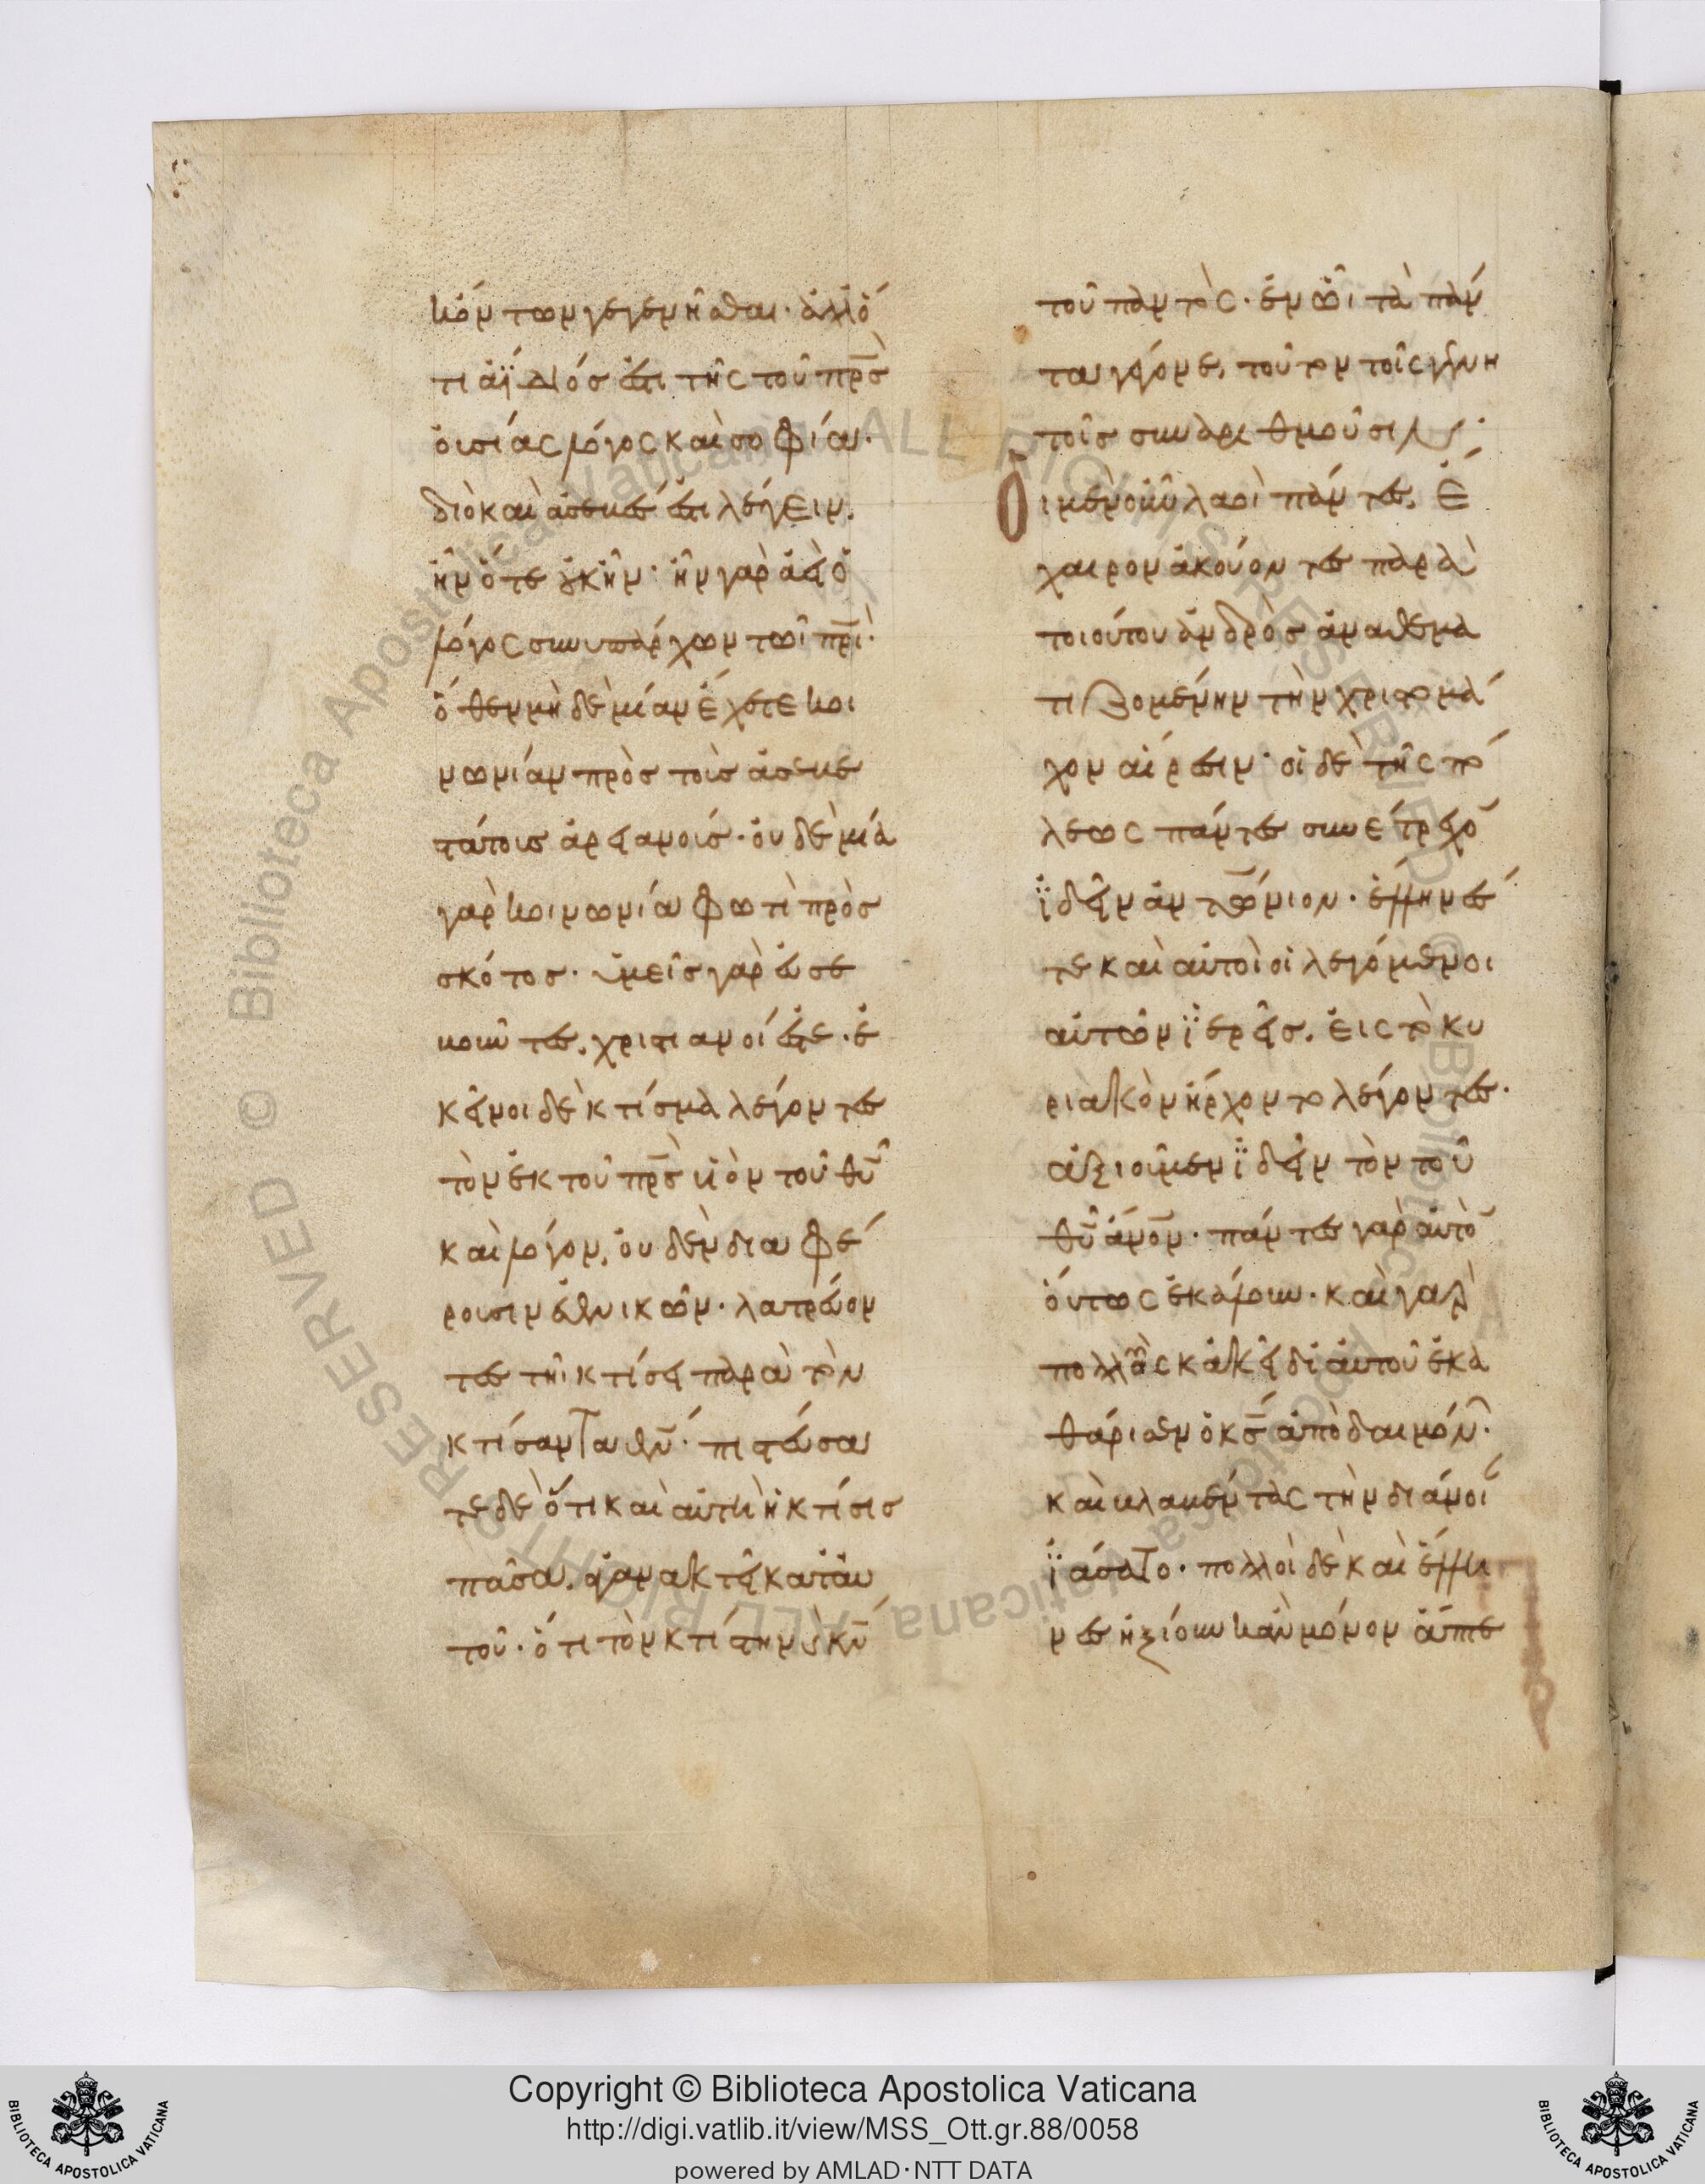 κόντων γεγενῆσθαι· ἀλλ' ὅ
τι ἀΐδιός ἐστι τῆς τοῦ πρ̅ς
οὐσίας λόγος καὶ σοφία·
διὸ καὶ ἀσεβές ἐστι λέγειν,
ἦν ὅτε οὐκ ἦν· ἦν γὰρ ἀεὶ ὁ
λόγος συνυπάρχων τῶι πρ̅ι·
ὅθεν μὴ δὲ μίαν ἔχετε κοι
νωνίαν πρὸς τοὺς ἀσεβε
τάτους ἀρειανούς· οὐδὲ μία
γὰρ κοινωνία φωτὶ πρὸς
σκότος· ὑμεῖς γὰρ εὐσε
βοῦντες, χριστιανοί ἐστε· ἐ
κεῖνοι δὲ κτίσμα λέγοντες
τὸν ἐκ τοῦ πρ̅ς υἱὸν τοῦ θυ̅
καὶ λόγον, οὐδὲν διαφέ
ρουσιν ἐθνικῶν· λατρεύον
τες τῆι κτίσει παρὰ τὸν
κτίσαντα θν̅· πιστεύσα
τε δὲ ὅτι καὶ αὐτὴ ἡ κτίσις
πᾶσα, ἀγανακτεῖ κατ' αὐ
τοῦ· ὅτι τὸν κτίστην καὶ κν̅
τοῦ παντὸς· ἐν ὧι τὰ πάν
τα γέγονε, τοῦτον τοῖς γενη
τοῖς συναριθμοῦσιν·
Οἱ μὲν οὖν λαοὶ πάντες, ἔ
χαιρον ἀκούοντες παρὰ
τοιούτου ἀνδρὸς ἀναθεμα
τιζομένην τὴν χριστομά
χον αἵρεσιν· οἱ δὲ τῆς πό
λεως πάντες συνέτρεχο̅
ἰδεῖν ἀντώνιον· ἕλληνές
τε καὶ αὐτοὶ οἱ λεγόμενοι
αὐτῶν ἱερεῖς, εἰς τὸ κυ
ριακὸν ἤρχοντο λέγοντες·
ἀξιοῦμεν ἰδεῖν τὸν τοῦ
θυ̅ ἄνο̅ν· πάντες γὰρ αὐτὸ̅
οὕτως ἐκάλουν· καὶ γὰρ
πολλοὺς κἀκεῖ δι' αὐτοῦ ἐκα
θάρισεν ὁ κς̅ ἀπὸ δαιμόνων·
καὶ βλαβέντας τὴν διάνοι
ἰάσατο· πολλοὶ δὲ καὶ ἕλλη
νες ἠξίουν κἂν μόνον ἅπτε
Copyright © Biblioteca Apostolica Vaticana
http://digi.vatlib.it/view/MSS_Ott.gr.88/0058
powered by AMLAD·NTT DATA